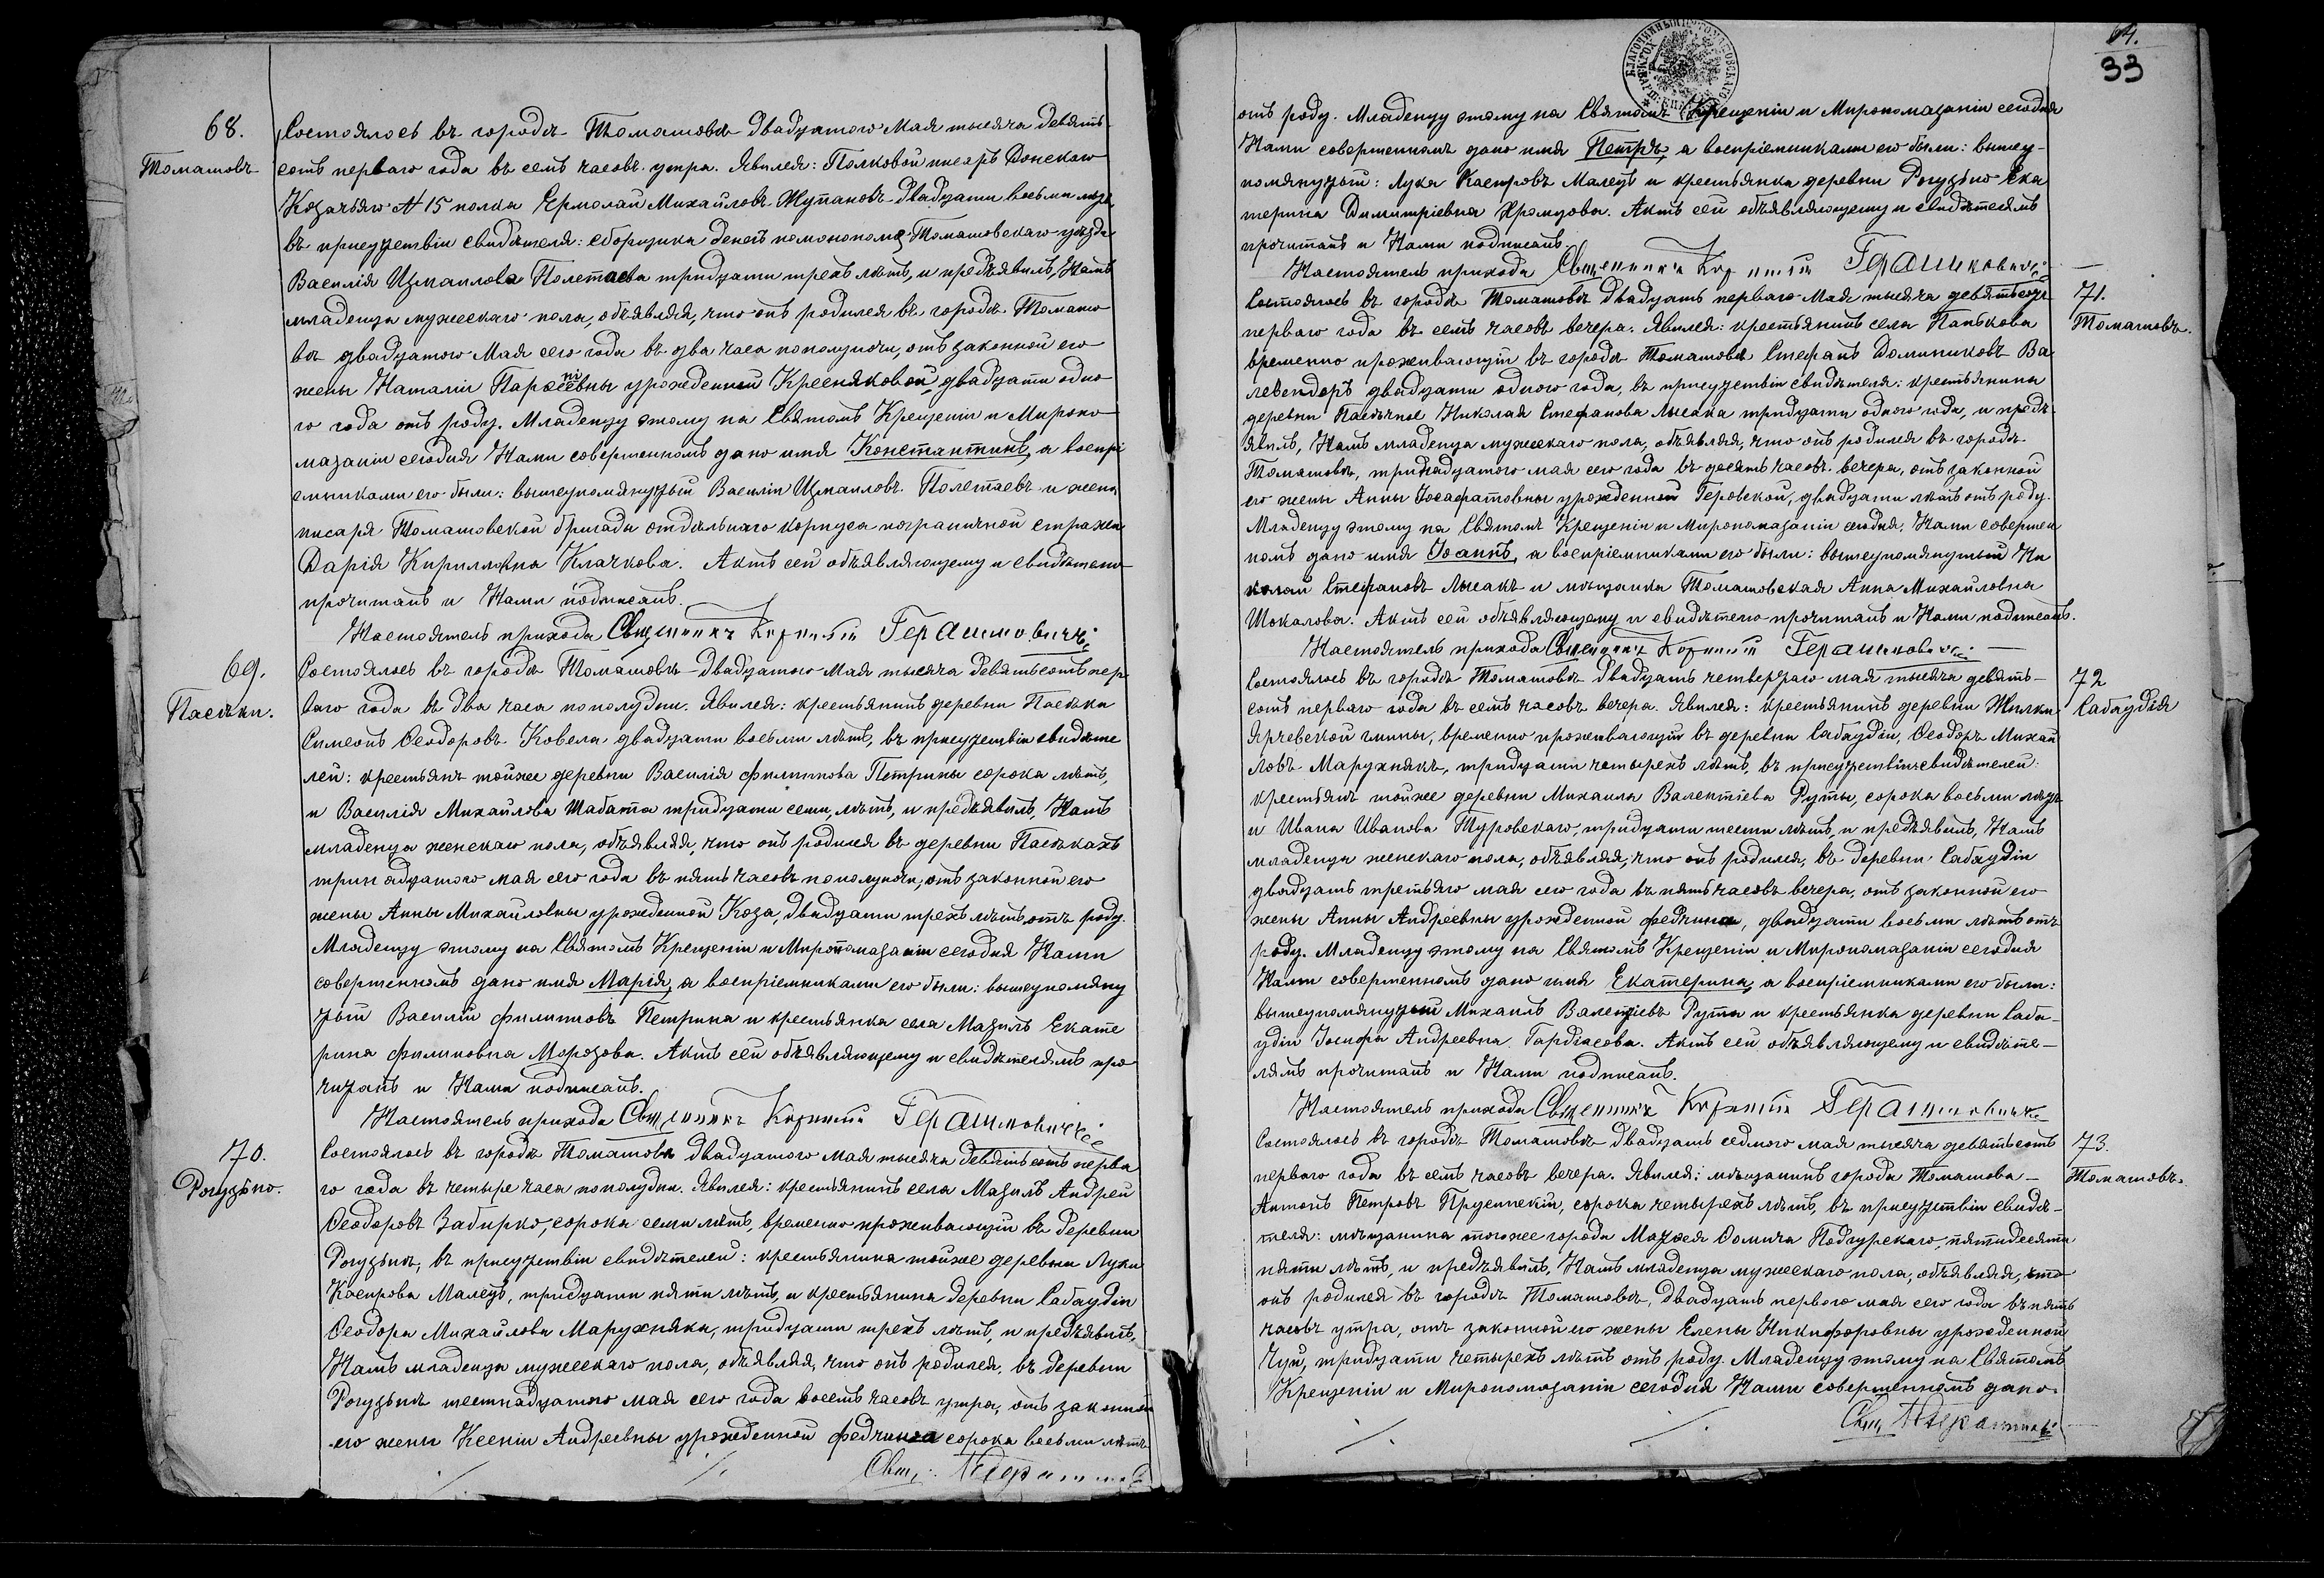 68.
Томашовъ
Состоялось въ городѣ Томашовѣ двадцатого Мая тысяча девять-
сотъ перваго года въ семь часовъ утра. Явился: Полковой писарь Донскаго
Козачьяго № 15 полка Ермолай Михайловъ Жупановъ двадцати восьми лѣтъ,
въ присутствіи свидѣтеля: сборщика денегъ Томашовскаго уѣзда
Василія Измаилова Полетаева тридцати трехъ лѣтъ, и предъявилъ Намъ
младенца мужескаго пола, объявляя, что онъ родился въ городѣ Томашо
вѣ двадцатого Мая сего года въ два часа пополуночи, отъ законной его
жены Наталіи урожденной Кресняковой, двадцати одно
го года отъ роду. Младенцу этому на Святомъ Крещеніи и Миропо
мазаніи сегодня Нами совершенномъ дано имя Константинъ, а воспрі
емниками его были: вышеупомянутый Василій Измаиловъ Полетаевъ и жена
писаря Томашовской бригады отдѣльнаго корпуса пограничной стражи
Дарія Кирилловна Клачкова. Актъ сей объявляющему и свидѣтелю
прочитанъ и Нами подписанъ.
Настоятель прихода Священникъ Корнилій Герасимовичъ
69.
Пасѣки.
Состоялось въ городѣ Томашовѣ двадцатого Мая тысяча девятьсотъ пер
ваго года въ два часа пополудни. Явился: крестьянинъ деревни Пасѣки
Симеонъ Ѳеодоровъ Ковела двадцати восьми лѣтъ, въ присутствіи свидѣте
лей: крестьянъ тойже деревни Василія Филиппова Петрины сорока лѣтъ,
и Василія Михайлова Шабата тридцати семи лѣтъ, и предъявилъ Намъ
младенца женскаго пола, объявляя, что онъ родился въ деревни Пасѣкахъ
тринадцатого мая сего года въ пять часовъ пополуночи, отъ законной его
жены Анны Михайловны урожденной Коза, двадцати трехъ лѣтъ отъ роду.
Младенцу этому на Святомъ Крещеніи и Миропомазаніи сегодня Нами
совершенномъ дано имя Марія, а воспріемниками его были: вышеупомяну
тый Василій Филипповъ Петрина и крестьянка села Мазилъ Екате
рина Филиповна Морозова. Актъ сей объявляющему и свидѣтелямъ про
читанъ и Нами подписанъ.
Настоятель прихода Священникъ Корнилій Герасимовичъ
70.
Рогузьно.
Состоялось въ городѣ Томашовѣ двадцатого мая тысяча девятьсотъ перва
го года въ четыре часа пополудни. Явился: крестьянинъ села Мазилъ Андрей
Ѳеодоровъ Забирко, сорока семи лѣтъ, временно проживающій въ деревни
Рогузьнѣ, въ присутствіи свидѣтелей: крестьянина тойже деревни Луки
Каспрова Малецъ, тридцати пяти лѣтъ, и крестьянина деревни Сабаудіи
Ѳеодора Михайлова Марухняка, тридцати трехъ лѣтъ, и предъявилъ,
Намъ младенца мужескаго пола, объявляя, что онъ родился, въ деревни
Рогузьнѣ шестнадцатого мая сего года восемь часовъ утра, отъ законной
его жены Ксеніи Андреевны урожденной Федчина сорока восьми лѣтъ
Свящ.
64.
33
отъ роду. Младенцу этому на Святомъ Крещеніи и Миропомазаніи сегодня
Нами совершенномъ дано имя Петръ, а воспріемниками его были: вышеу-
помянутый: Лука Каспровъ Малецъ и крестьянка деревни Рогузьно Ека
терина Димитріевна Хромцова. Актъ сей объявляющему и свидѣтелямъ
прочитанъ и Нами подписанъ.
Настоятель прихода Священникъ Корнилій Герасимовичъ
71.
Томашовъ.
Состоялось въ городѣ Томашовѣ двадцать перваго Мая тысяча девятьсотъ
перваго года въ семь часовъ вечера. Явился: крестьянинъ села Панькова
временно проживающій въ городѣ Томашовѣ Стефанъ Доминиковъ Ва
левендоръ двадцати одного года, въ присутствіи свидѣтеля: крестьянина
деревни Николая Стефанова Лысака тридцати одного года, и предъ
явилъ, Намъ младенца мужескаго пола, объявляя, что онъ родился въ городѣ
Томашовѣ, тринадцатого мая сего года въ десять часовъ вечера, отъ законной
его жены Анны Іосафатовны урожденной Геровской, двадцати лѣтъ отъ роду.
Младенцу этому на Святомъ Крещеніи и Миропомазаніи сегодня, Нами совершен
номъ дано имя Іоаннъ, а воспріемниками его были: вышеупомянутый Ни
колай Стефановъ Лысакъ и мѣщанка Томашовская Анна Михайловна
Шокалова. Актъ сей объявляющему и свидѣтелю прочитанъ и Нами подписанъ.
Настоятель прихода Священникъ Корнилій Герасимовичъ
72
Сабаудія
Состоялось въ городѣ Томашовѣ двадцать четвертаго мая тысяча девять-
сотъ перваго года въ семь часовъ вечера. Явился: крестьянинъ деревни Жилки
Ярчевской гмины, временно проживающій въ деревни Сабаудіи, Ѳеодоръ Михай
ловъ Марухнякъ, тридцати четырехъ лѣтъ, въ присутствіи свидѣтелей:
крестьянъ тойже деревни Михаила Валентіева Руты, сорока восьми лѣтъ
и Ивана Иванова Туровскаго, тридцати шести лѣтъ, и предъявилъ, Намъ
младенца женскаго пола, объявляя, что онъ родился, въ деревни Сабаудіи
двадцать третьяго мая сего года въ пять часовъ вечера, отъ законной его
жены Анны Андреевны урожденной Федчина, двадцати восьми лѣтъ отъ
роду. Младенцу этому на Святомъ Крещеніи и Миропомазаніи сегодня
Нами совершенномъ дано имя Екатерина, а воспріемниками его были:
вышеупомянутый Михаилъ Валентіевъ Рута и крестьянка деревни Саба-
удіи Іосифа Андреевна Гардіасова. Актъ сей объявляющему и свидѣте-
лямъ прочитанъ и Нами подписанъ.
Настоятель прихода Священникъ Корнилій Герасимовичъ
73.
Томашовъ.
Состоялось въ городѣ Томашовѣ двадцать седмого мая тысяча девятьсотъ
перваго года въ семь часовъ вечера. Явился: мѣщанинъ города Томашова
Антонъ Петровъ Прусинскій, сорока четырехъ лѣтъ, въ присутствіи свидѣ-
теля: мѣщанина тогоже города Матѳея Ѳомича Подгурскаго, пятидесяти
пяти лѣтъ, и предъявилъ, Намъ младенца мужескаго пола, объявляя, что
онъ родился въ городѣ Томашовѣ, двадцать перваго мая сего года въ пять
часовъ утра, отъ законной его жены Елены Никифоровны урожденной
Чуй, тридцати четырехъ лѣтъ отъ роду. Младенцу этому на Святомъ
Крещеніи и Миропомазаніи сегодня Нами совершенномъ дано
Свящ.